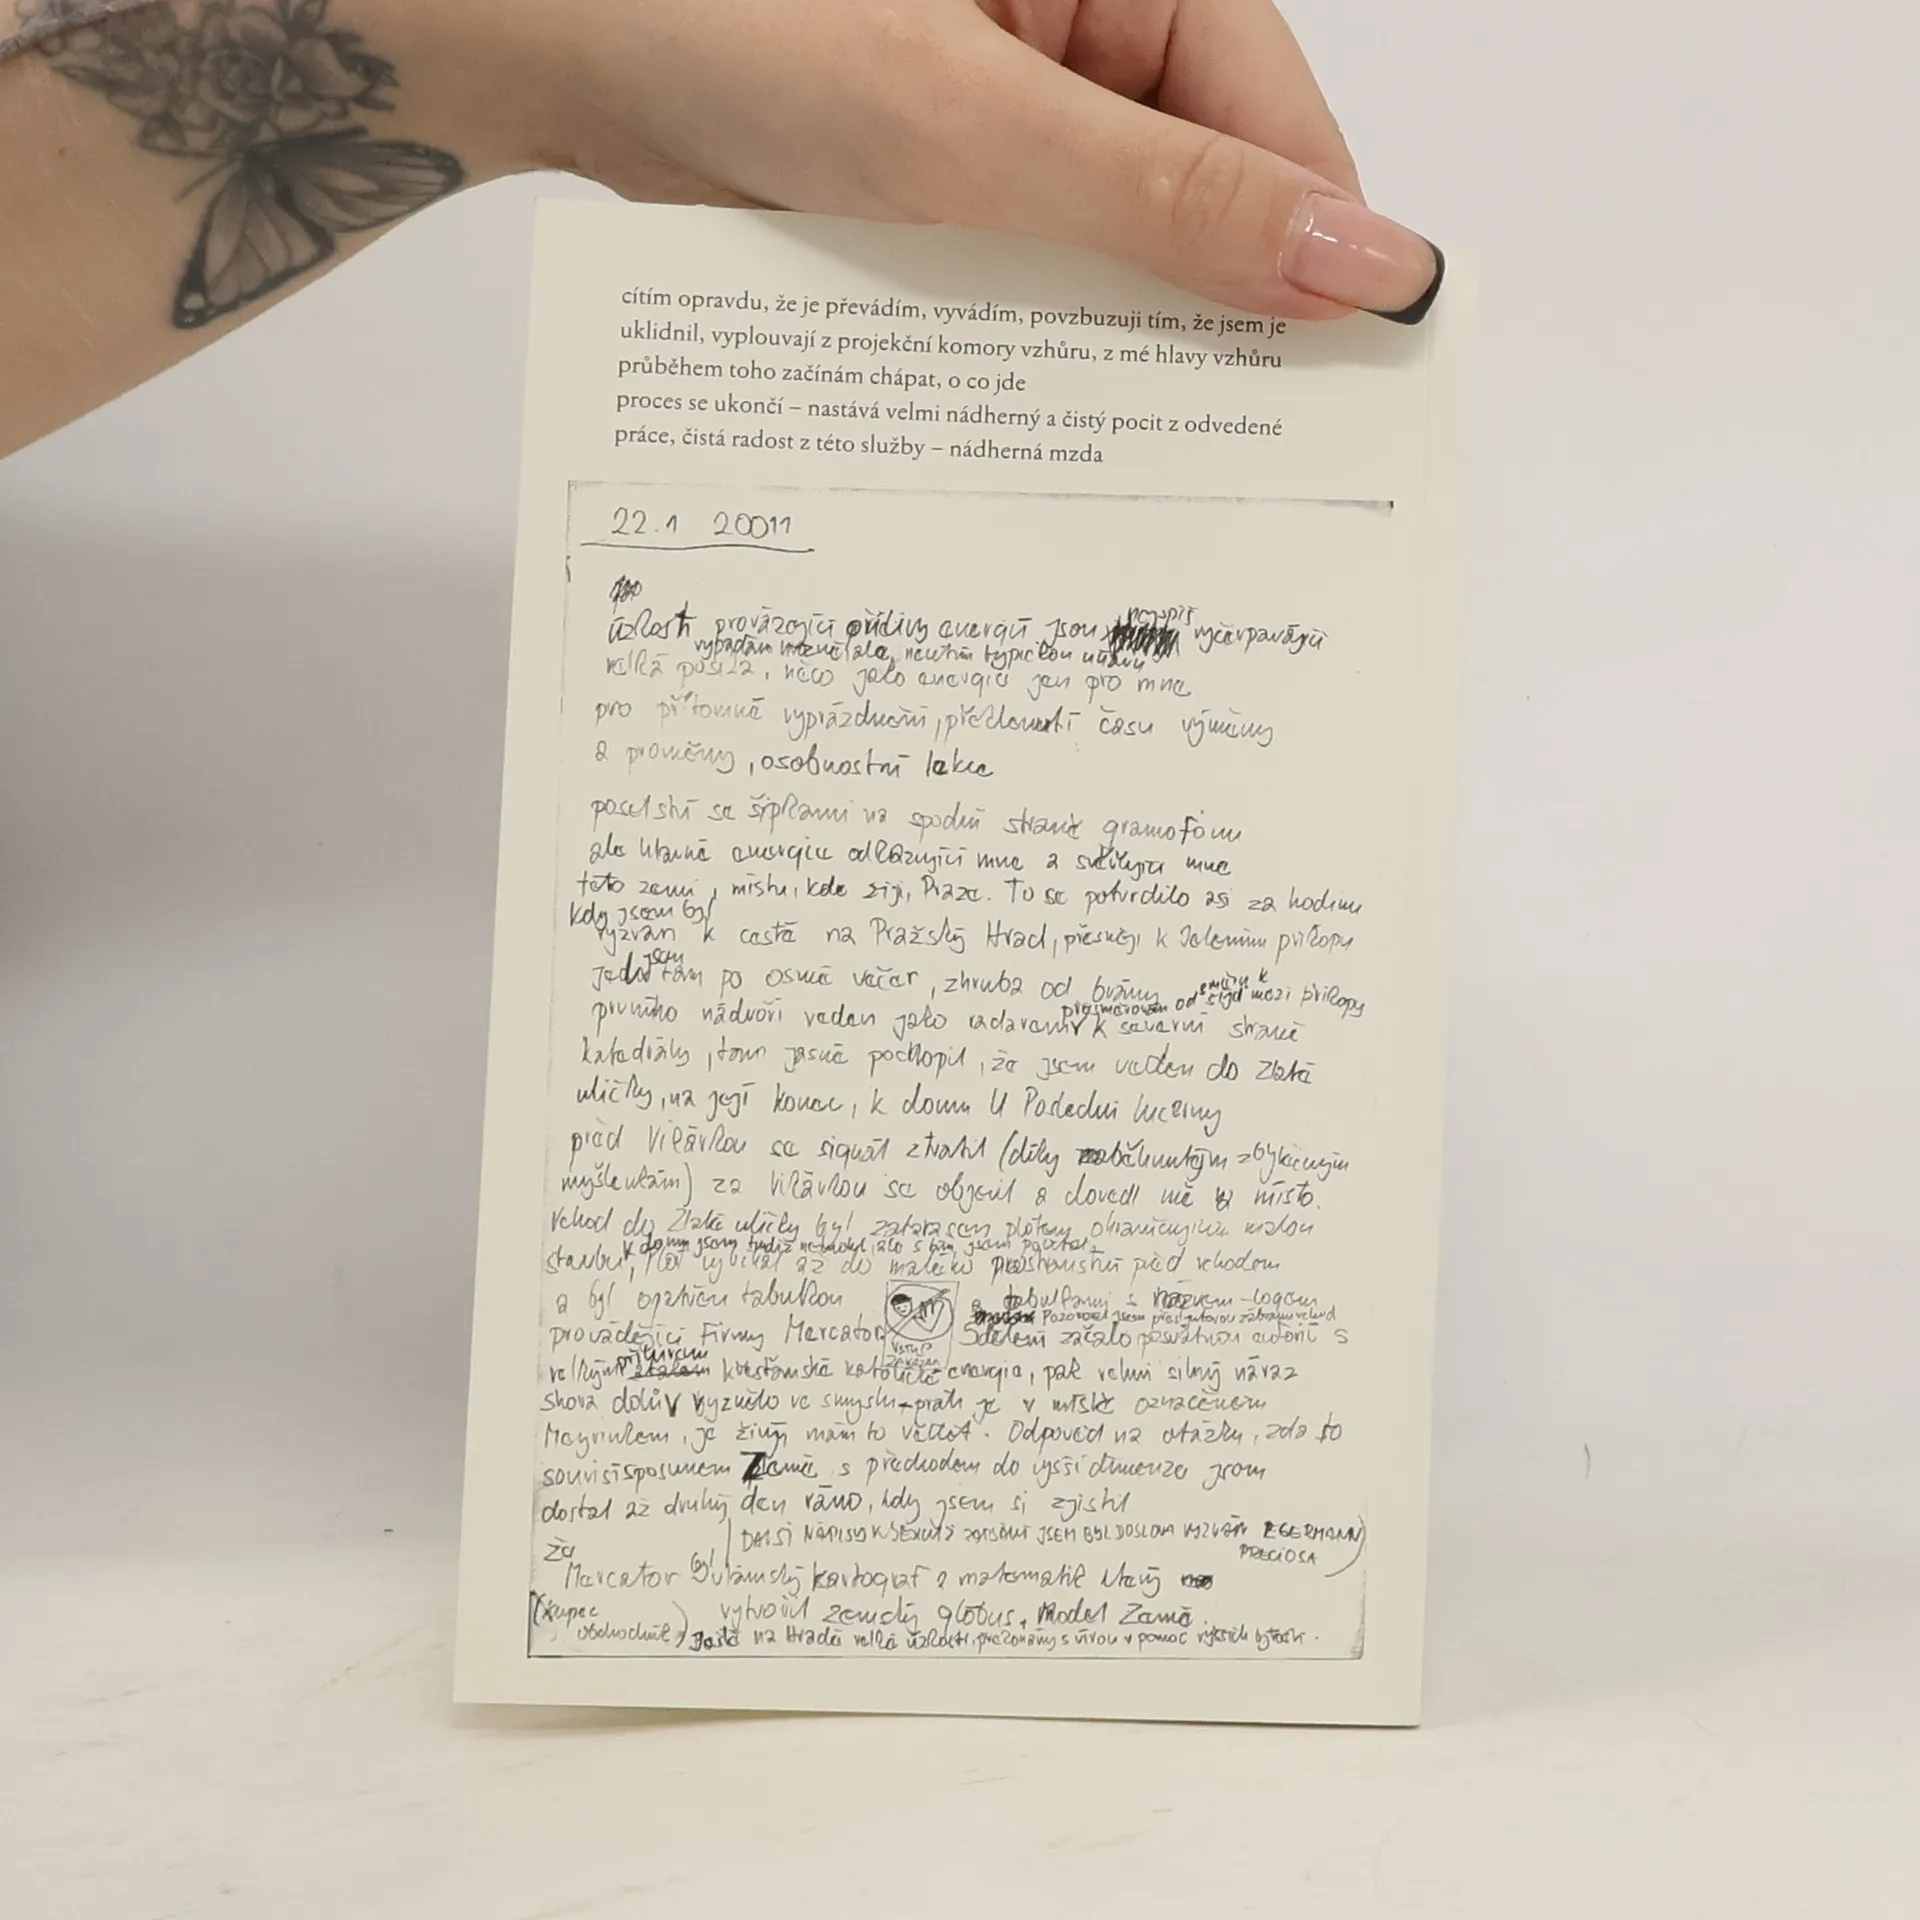 cítím opravdu, že je převádím, vyvádím, povzbuzuji tím, že jsem je
uklidnil, vyplouvají z projekční komory vzhůru, z mé hlavy vzhůru
průběhem toho začínám chápat, o co jde
proces se ukončí – nastává velmi nádherný a čistý pocit z odvedené
práce, čistá radost z této služby – nádherná mzda
22.1 20011
nejspíš
úzkosti provázející přílivy energií jsou vyčerpávající
vypadám ale, necítím typickou únavu
velká posila, něco jako energie jen pro mne
pro přítomné vyprázdnění, předlouhí času výměny
a proměny, osobnostní lekce
poselství se šipkami na spodní straně gramofonu
ale hlavně energie odkazující mne a mne
této zemi, místu, kde žiji, Praze. To se potvrdilo asi za hodinu
kdy jsem byl
vyzván k cestě na Pražský Hrad, přesněji k Jelenímu příkopu
jsem
tam po osmé večer, zhruba od brány směru k mezi příkopy
přesměrován od
prvního nádvoří veden jako radarem k severní straně
katedrály, tam jasně pochopil, že jsem veden do Zlaté
uličky, na její konec, k domu U Poslední lucerny
před Vikárkou se signál ztratil (díky zbytečným
myšlenkám) za Vikárkou se objevil a dovedl mě na místo.
Vchod do Zlaté uličky byl zatarasen plotem ohraničujícím malou
k domu jsem tudíž nemohl, ale s tím jsem počítal
stavbu, až do malého prostranství před vchodem
a byl opatřen tabulkou a tabulkami s názvem-logem
Pozoroval jsem
provádějící Firmy Mercator Sdělení začalo posvátnou s
VSTUP
ZAKÁZÁN
přílivem
velkým křesťanské katolické energie, pak velmi silný náraz
shora dolů vyznělo ve smyslu - práh je v místě označeném
Meyrinkem, je živý, mám to vědět. Odpověď na otázku, zda to
souvisí s posunem Země, s přechodem do vyšší dimenze jsem
dostal až druhý den ráno, kdy jsem si zjistil
DALŠÍ NÁPISY K JSEM BYL DOSLOVA VYZVÁN EGERMANN
PRECIOSA)
že
Mercator byl vlámský kartograf a matematik který
(kupec vytvořil zemský glóbus, model Země.
obchodník) Ještě na Hradě velké úzkosti, překonány s vírou v pomoc vyšších bytostí.